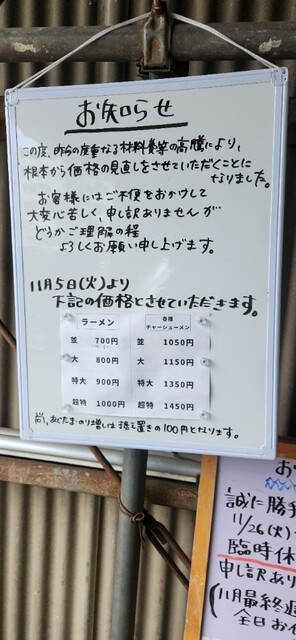 お知らせ
この度、昨今の度重なる材料費等の高騰により、
根本から価格の見直しをさせていただくことに
なりました。
お客様にはご不便をおかけして
大変心苦しく、申し訳ありませんが
どうかご理解の程
よろしくお願い申し上げます。
11月5日(火)より
下記の価格とさせていただきます。
ラーメン
並 700円
大 800円
特大 900円
超特 1000円
各種
チャーシューメン
並 1050円
大 1150円
特大 1350円
超特 1450円
尚、あじたま・のり増しは据え置きの100円となります。
お
誠に勝手
11/26(火)
臨時休
申し訳あり
(11月最終週
全日お休